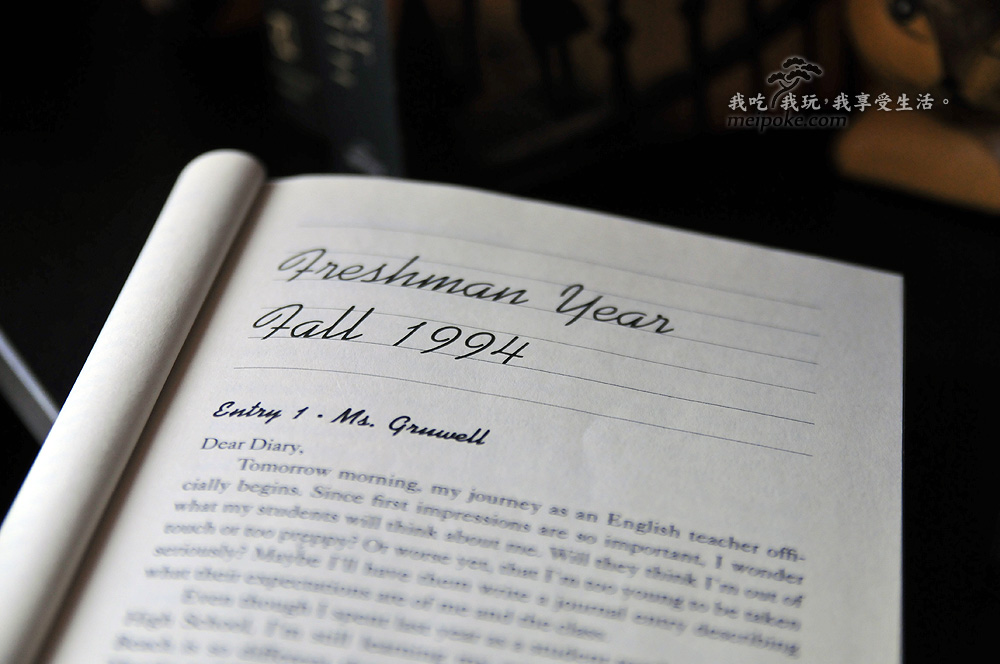 我吃 我玩，我享受生活。
meipoke.com
Freshman Year
Fall 1994
Entry 1 · Ms. Gruwell
Dear Diary,
Tomorrow morning, my journey as an English teacher offi-
cially begins. Since first impressions are so important, I wonder
what my students will think about me. Will they think I'm out of
touch or too preppy? Or worse yet, that I'm too young to be taken
seriously? Maybe I'll have them write a journal entry describing
what their expectations are of me and the class.
Even though I spent last year as a student
High School, I'm still learning
Beach is so different